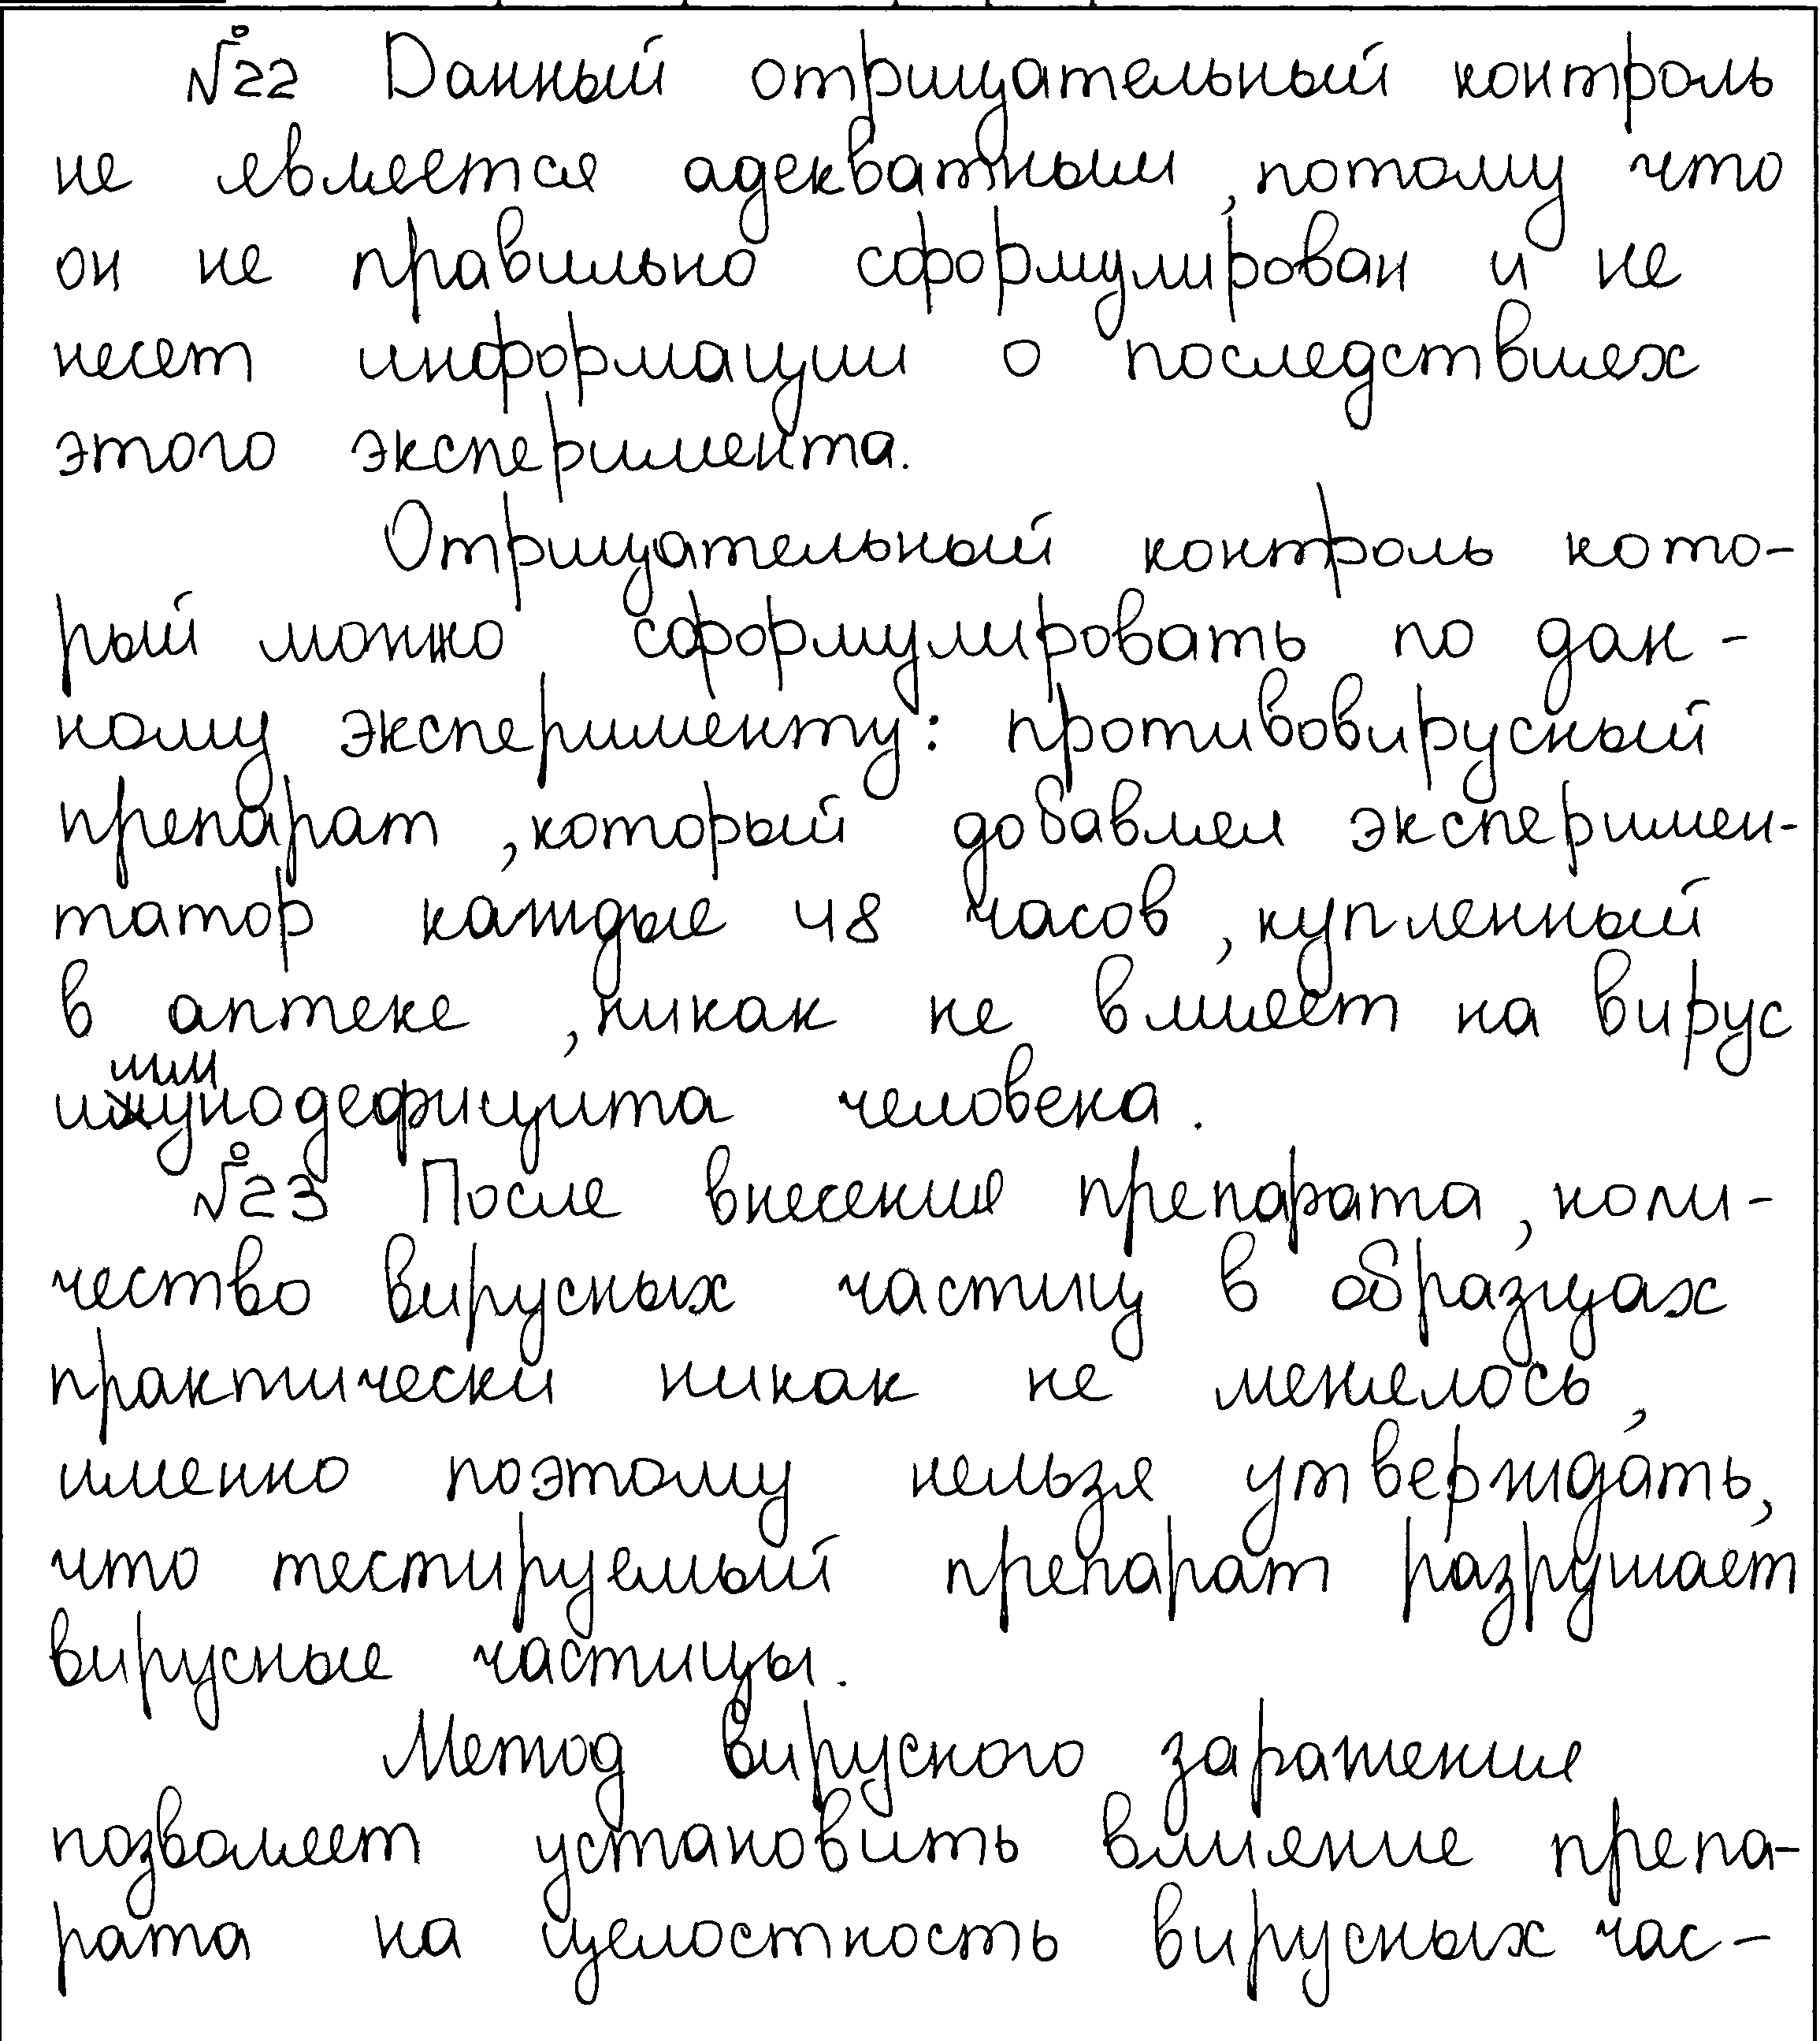 №22 Данный отрицательный контроль
не является адекватным, потому что
он не правильно сформулирован и не
несет информации о последствиях
этого эксперимента.
Отрицательный контроль кото-
рый можно сформулировать по дан-
ному эксперименту: противовирусный
препарат, который добавлял эксперимен-
татор каждые 48 часов, купленный
в аптеке, никак не влияет на вирус
иммунодефицита человека.
№23 После внесения препарата, коли-
чество вирусных частиц в образцах
практически никак не менялось,
именно поэтому нельзя утверждать,
что тестируемый препарат разрушает
вирусные частицы.
Метод вирусного заражения
позволяет установить влияние препа-
рата на целостность вирусных час-